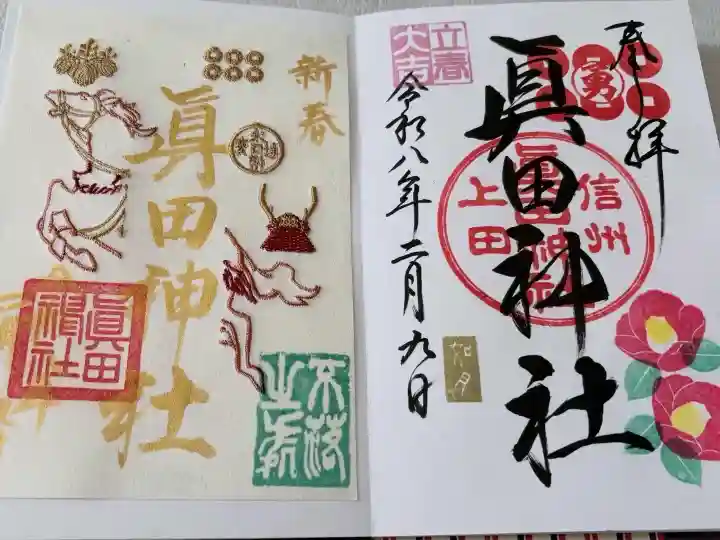 奉拝
勇
眞田神社
信州
上田
眞田神社
立春
大吉
令和八年二月九日
如月
新春
眞田神社
眞田
神社
不落